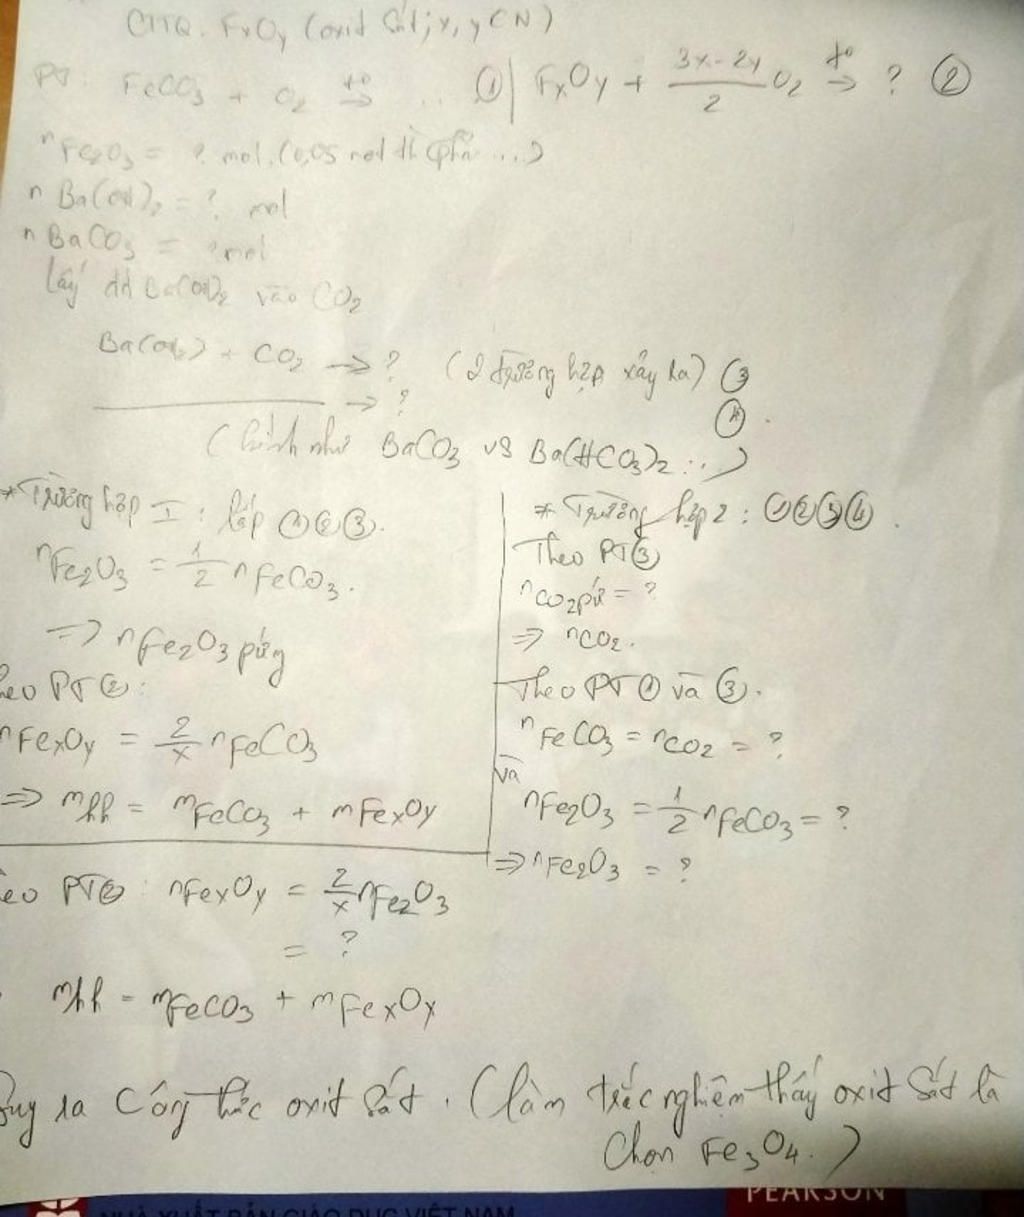 CTTQ. FxOy (oxit sắt; x, y ∈ N)
PT: FeCO3 + O2 t° → .. ① | FxOy + 3x-2y/2 O2 t° → ? ②
nFe2O3 = ? mol. (0,05 mol thì phải ...)
nBa(OH)2 = ? mol
nBaCO3 = ? mol
Lấy dd Ba(OH)2 vào CO2
Ba(OH)2 + CO2 → ? (2 trường hợp xảy ra) ③
→ ? ④.
(hình như BaCO3 vs Ba(HCO3)2 ...)
* Trường hợp I: lập ①②③.
nFe2O3 = 1/2 nFeCO3.
=> nFe2O3 pứng
heo PT②:
nFexOy = 2/x nFeCO3
=> mhh = mFeCO3 + mFexOy
* Trường hợp 2: ①②③④.
Theo PT③
nCO2 pứ = ?
=> nCO2.
Theo PT① và ③.
nFeCO3 = nCO2 = ?
và
nFe2O3 = 1/2 nFeCO3 = ?
=> nFe2O3 = ?
eo PT②: nFexOy = 2/x nFe2O3
= ?
mhh = mFeCO3 + mFexOy
uy ra Công thức oxit sắt. (làm trắc nghiệm thấy oxit sắt là
chọn Fe3O4.)
PEARSON
NHÀ XUẤT BẢN GIÁO DỤC VIỆT NAM